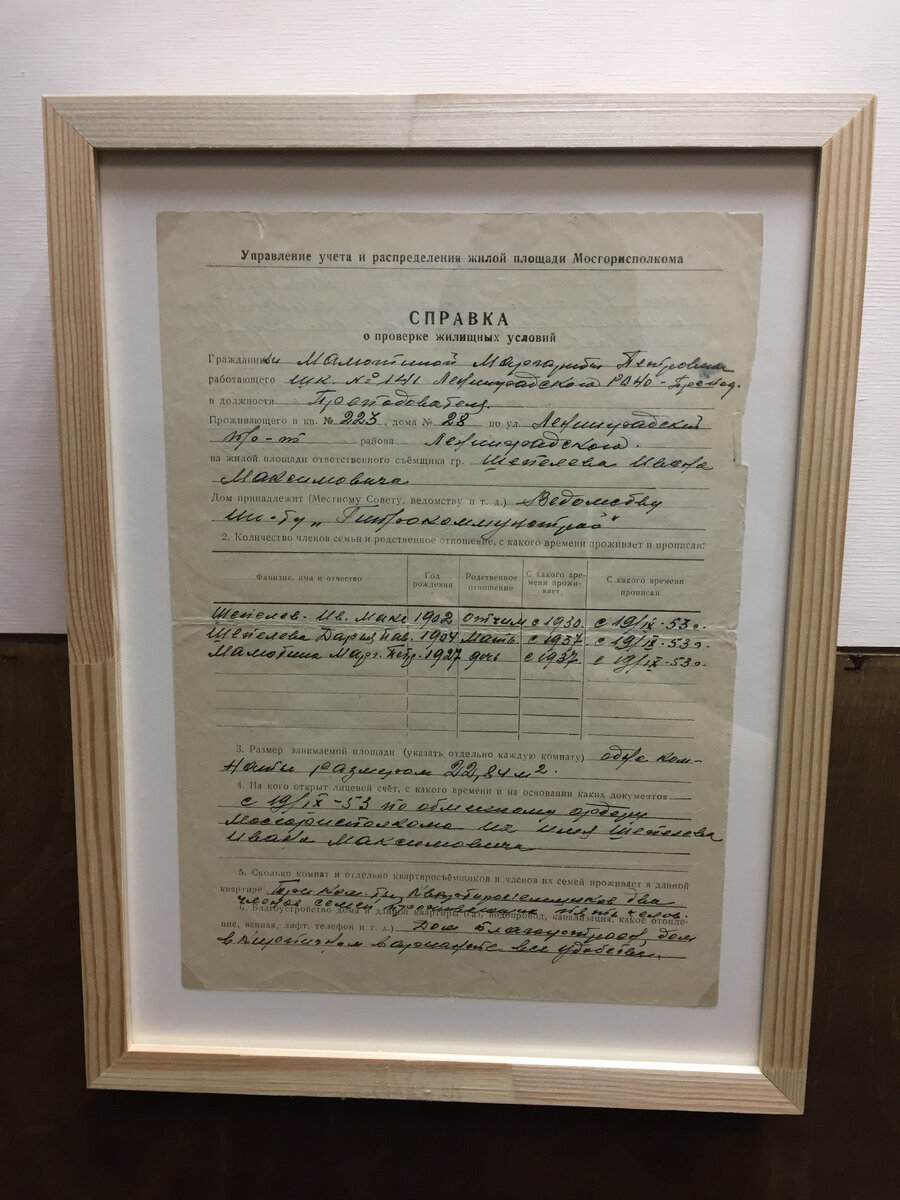 Управление учета и распределения жилой площади Мосгорисполкома
СПРАВКА
о проверке жилищных условий
Гражданки Мамотиной Маргариты Петровны
работающего шк. № 141 Ленинградского РОНО - Препод.
в должности Преподователя.
Проживающего в кв. № 223, дома № 28 по ул. Ленинградский
пр-т района Ленинградского.
на жилой площади ответственного съёмщика гр. Шепелева Ивана
Максимовича
Дом принадлежит (Местному Совету, ведомству и т. д.) Ведомству
ин-ту „Гипрокоммунстрой"
2. Количество членов семьи и родственное отношение, с какого времени проживает и прописан:
Фамилия, имя и отчество Год рождения Родственное отношение С какого времени проживает. С какого времени прописан
Шепелев Ив. Макс 1902 отчим с 1930. с 19/IX-53г.
Шепелева Дария Пав. 1904 мать с 1937. с 19/IX-53г.
Мамотина Марг. Петр. 1927 дочь с 1937. с 19/IX-53г.
3. Размер занимаемой площади (указать отдельно каждую комнату) одна ком-
ната размером 22,84 м².
4. На кого открыт лицевой счёт, с какого времени и на основании каких документов
с 19/IX-53 по обменному ордеру
Мосгорисполкома на имя Шепелева
Ивана Максимовича
5. Сколько комнат и отдельно квартиросъёмщиков и членов их семей проживает в данной
квартире Три ком-ты, квартиросъемщиков два
членов семей проживающих челов.
6. Благоустройство дома и данной квартиры (газ, водопровод, канализация, какое отопле-
ние, ванная, лифт, телефон и т. д.) Дом благоустроен, дом
в кирпичном варианте все удобства.